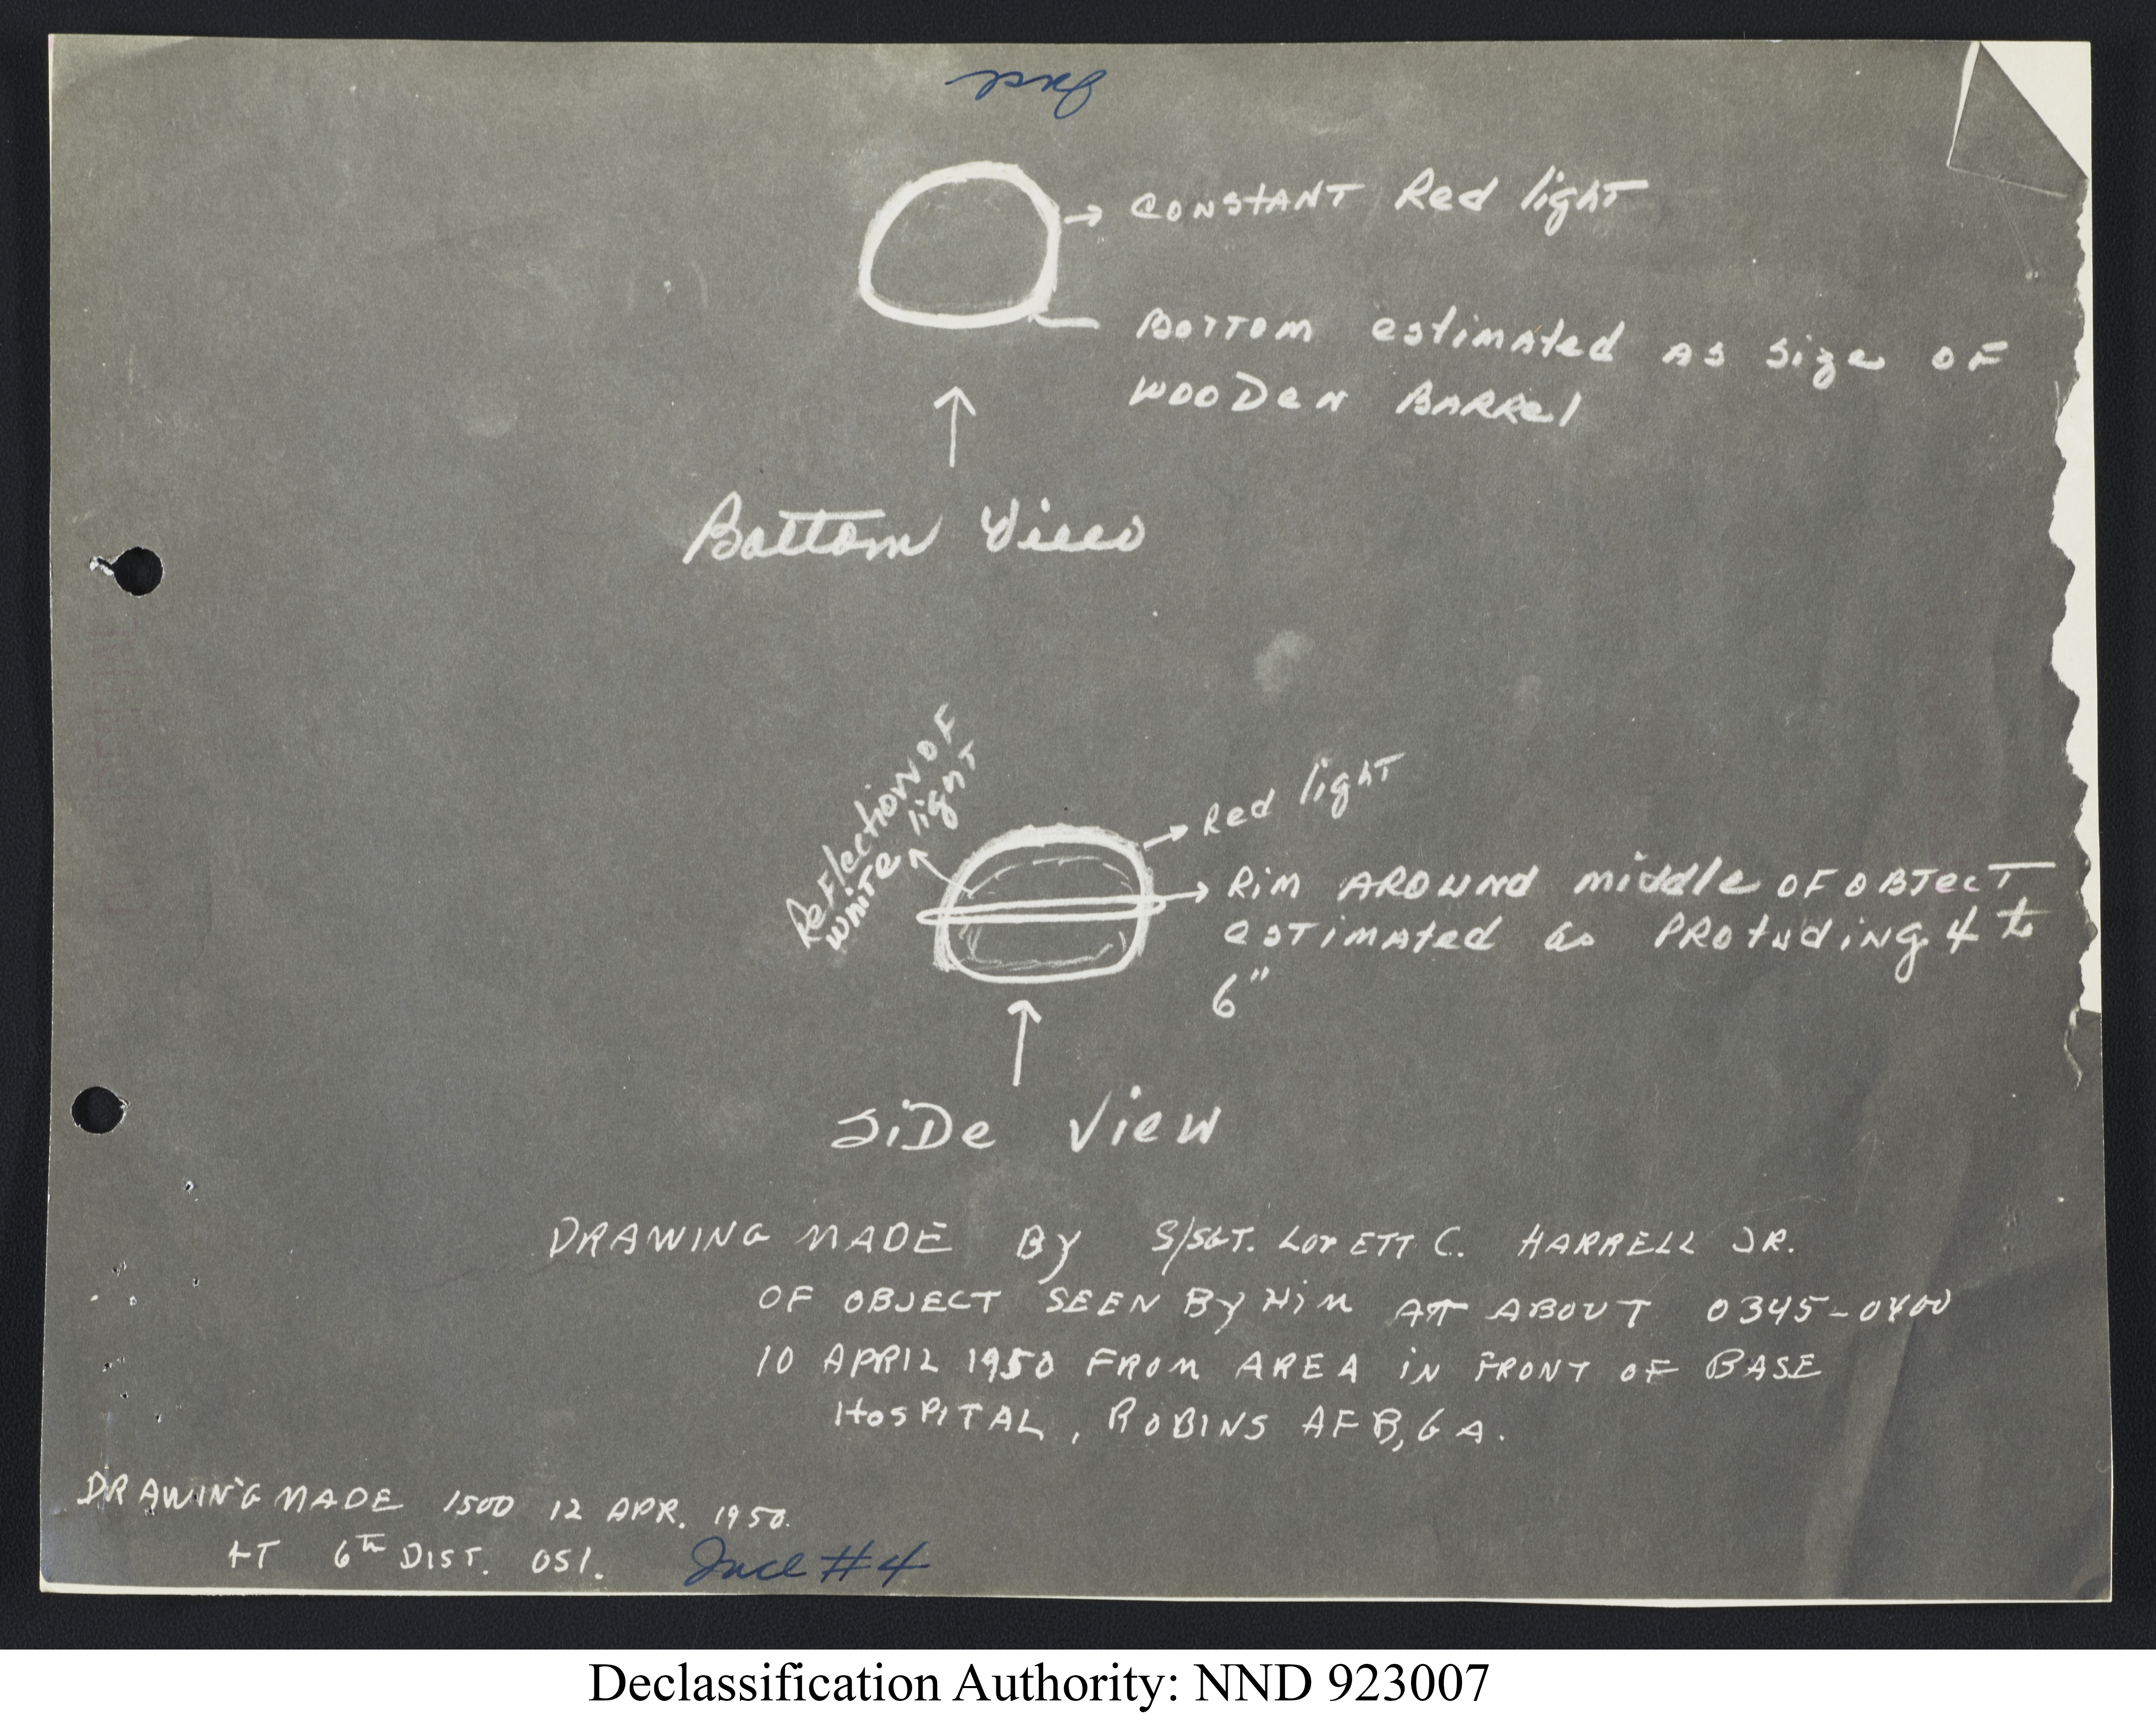 CONSTANT Red light
BOTTOM estimated AS size OF
WOODEN BARRel
Bottom View
ReFlection OF
white light
Red light
Rim AROUND middle OF OBJecT
esTimated as PROtuding 4 to
6"
SiDe View
DRAWING MADE By S/SGT. LOVETT C. HARRELL JR.
OF OBJECT SEEN By HiM AT ABOUT 0345-0400
10 APRIL 1950 FROM AREA iN FRONT OF BASE
HOSPITAL, ROBINS AFB, GA.
DRAWING MADE 1500 12 APR. 1950.
AT 6th DIST. OSI.
Incl #4
Declassification Authority: NND 923007